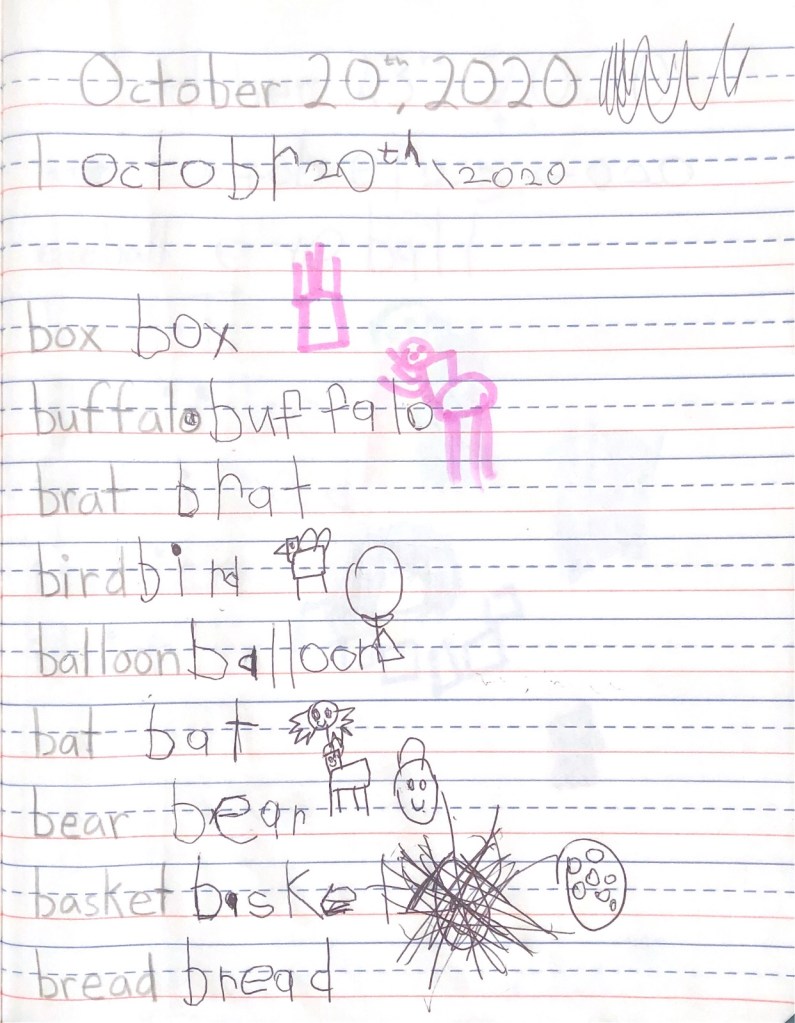 October 20th, 2020
1 Octobr 20th, 2020
box box
buffalo buffalo
brat brat
bird bird
balloon balloon
bat bat
bear bear
basket basket
bread bread